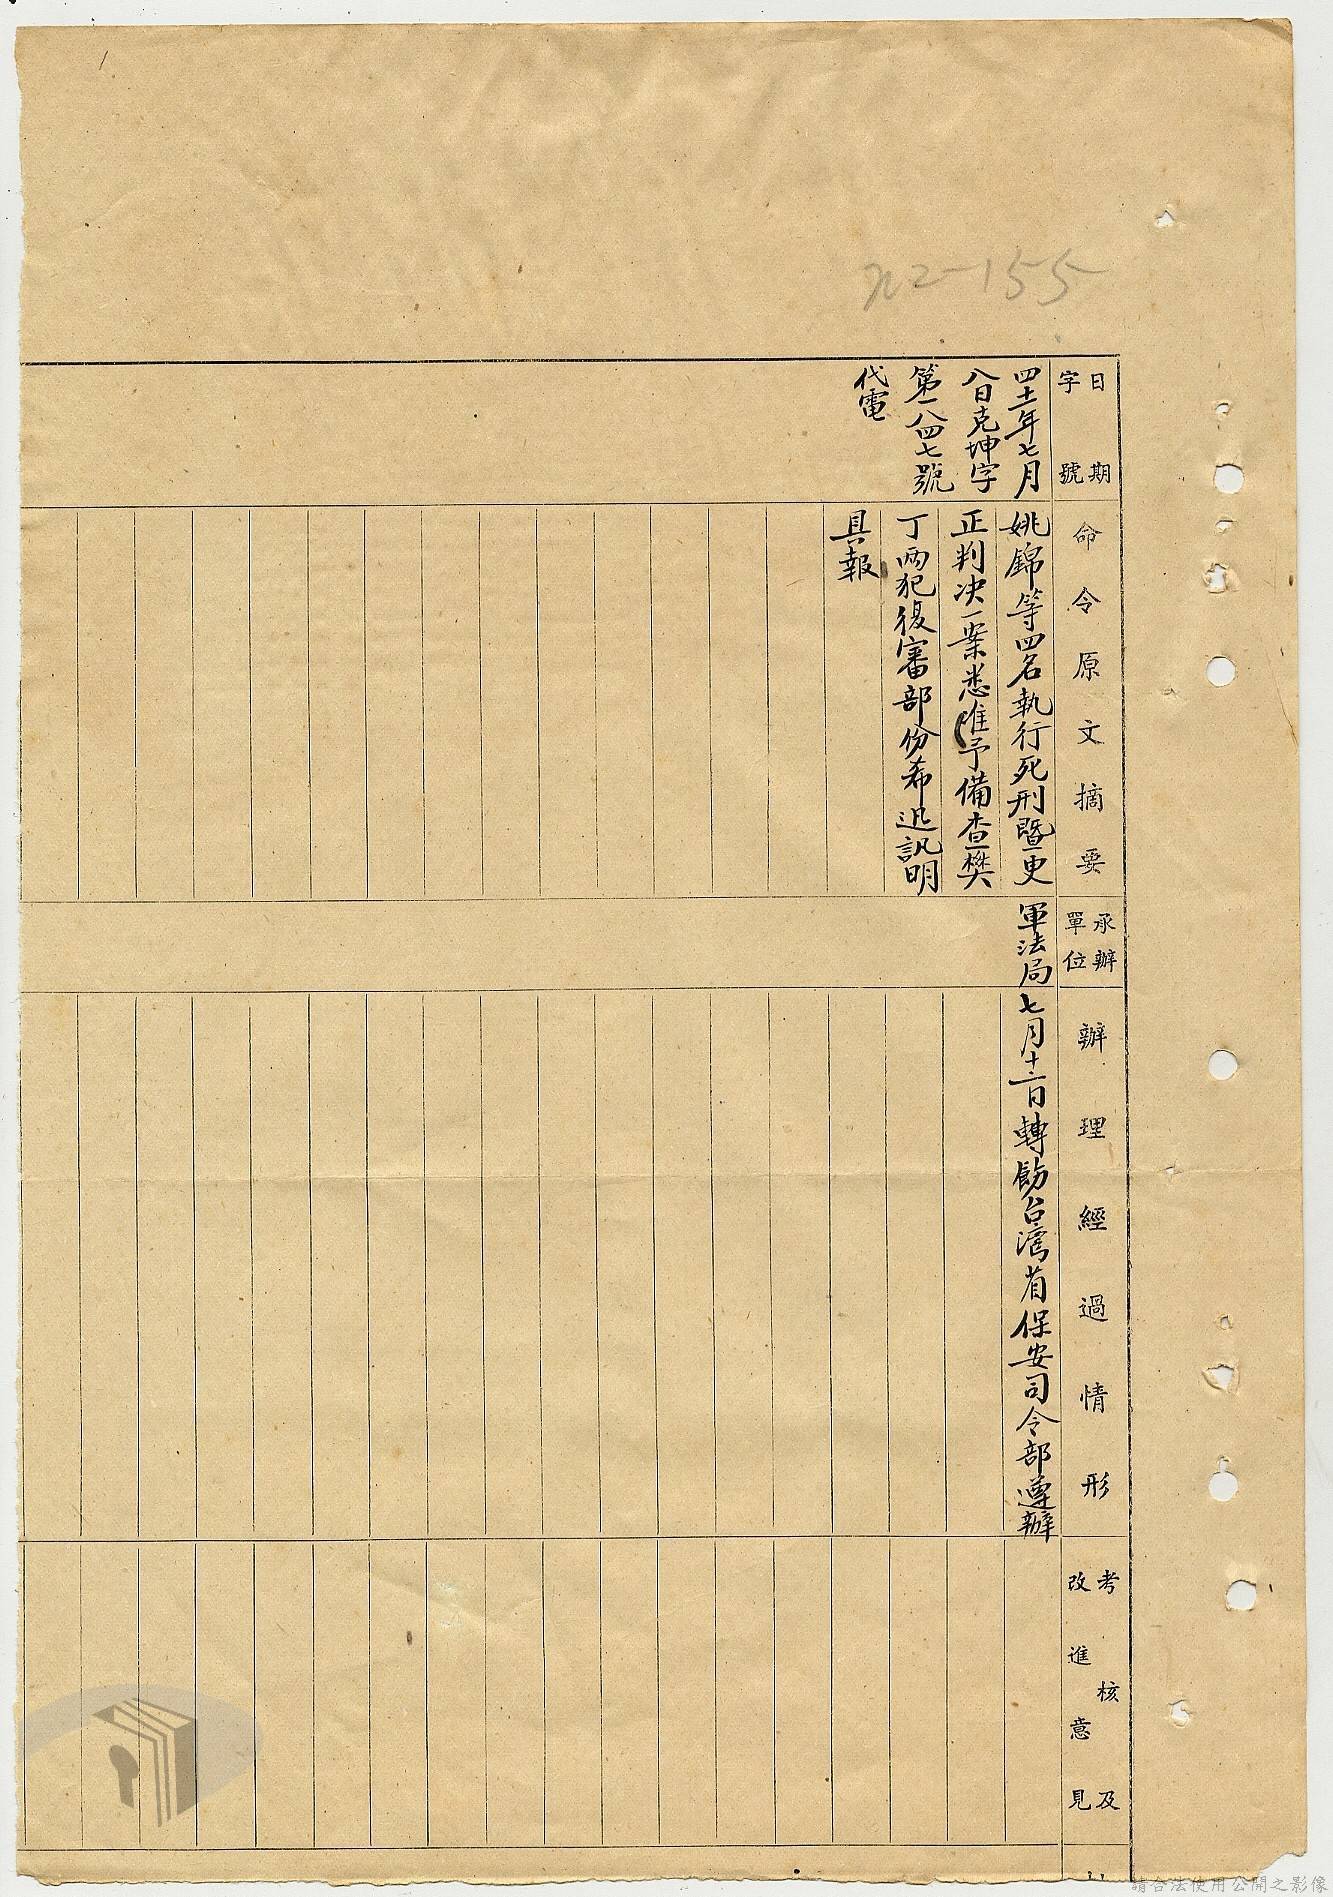 155
日期
字號
四十一年七月
八日克坤字
第一八四七號
代電
命令原文摘要
姚錦等四名執行死刑暨更
正判决一案悉准予備查樊
丁兩犯復審部份希迅訊明
具報
承辦
單位
軍法局
辦理經過情形
七月十二日轉飭台灣省保安司令部遵辦
考核及
改進意見
請合法使用公開之影像